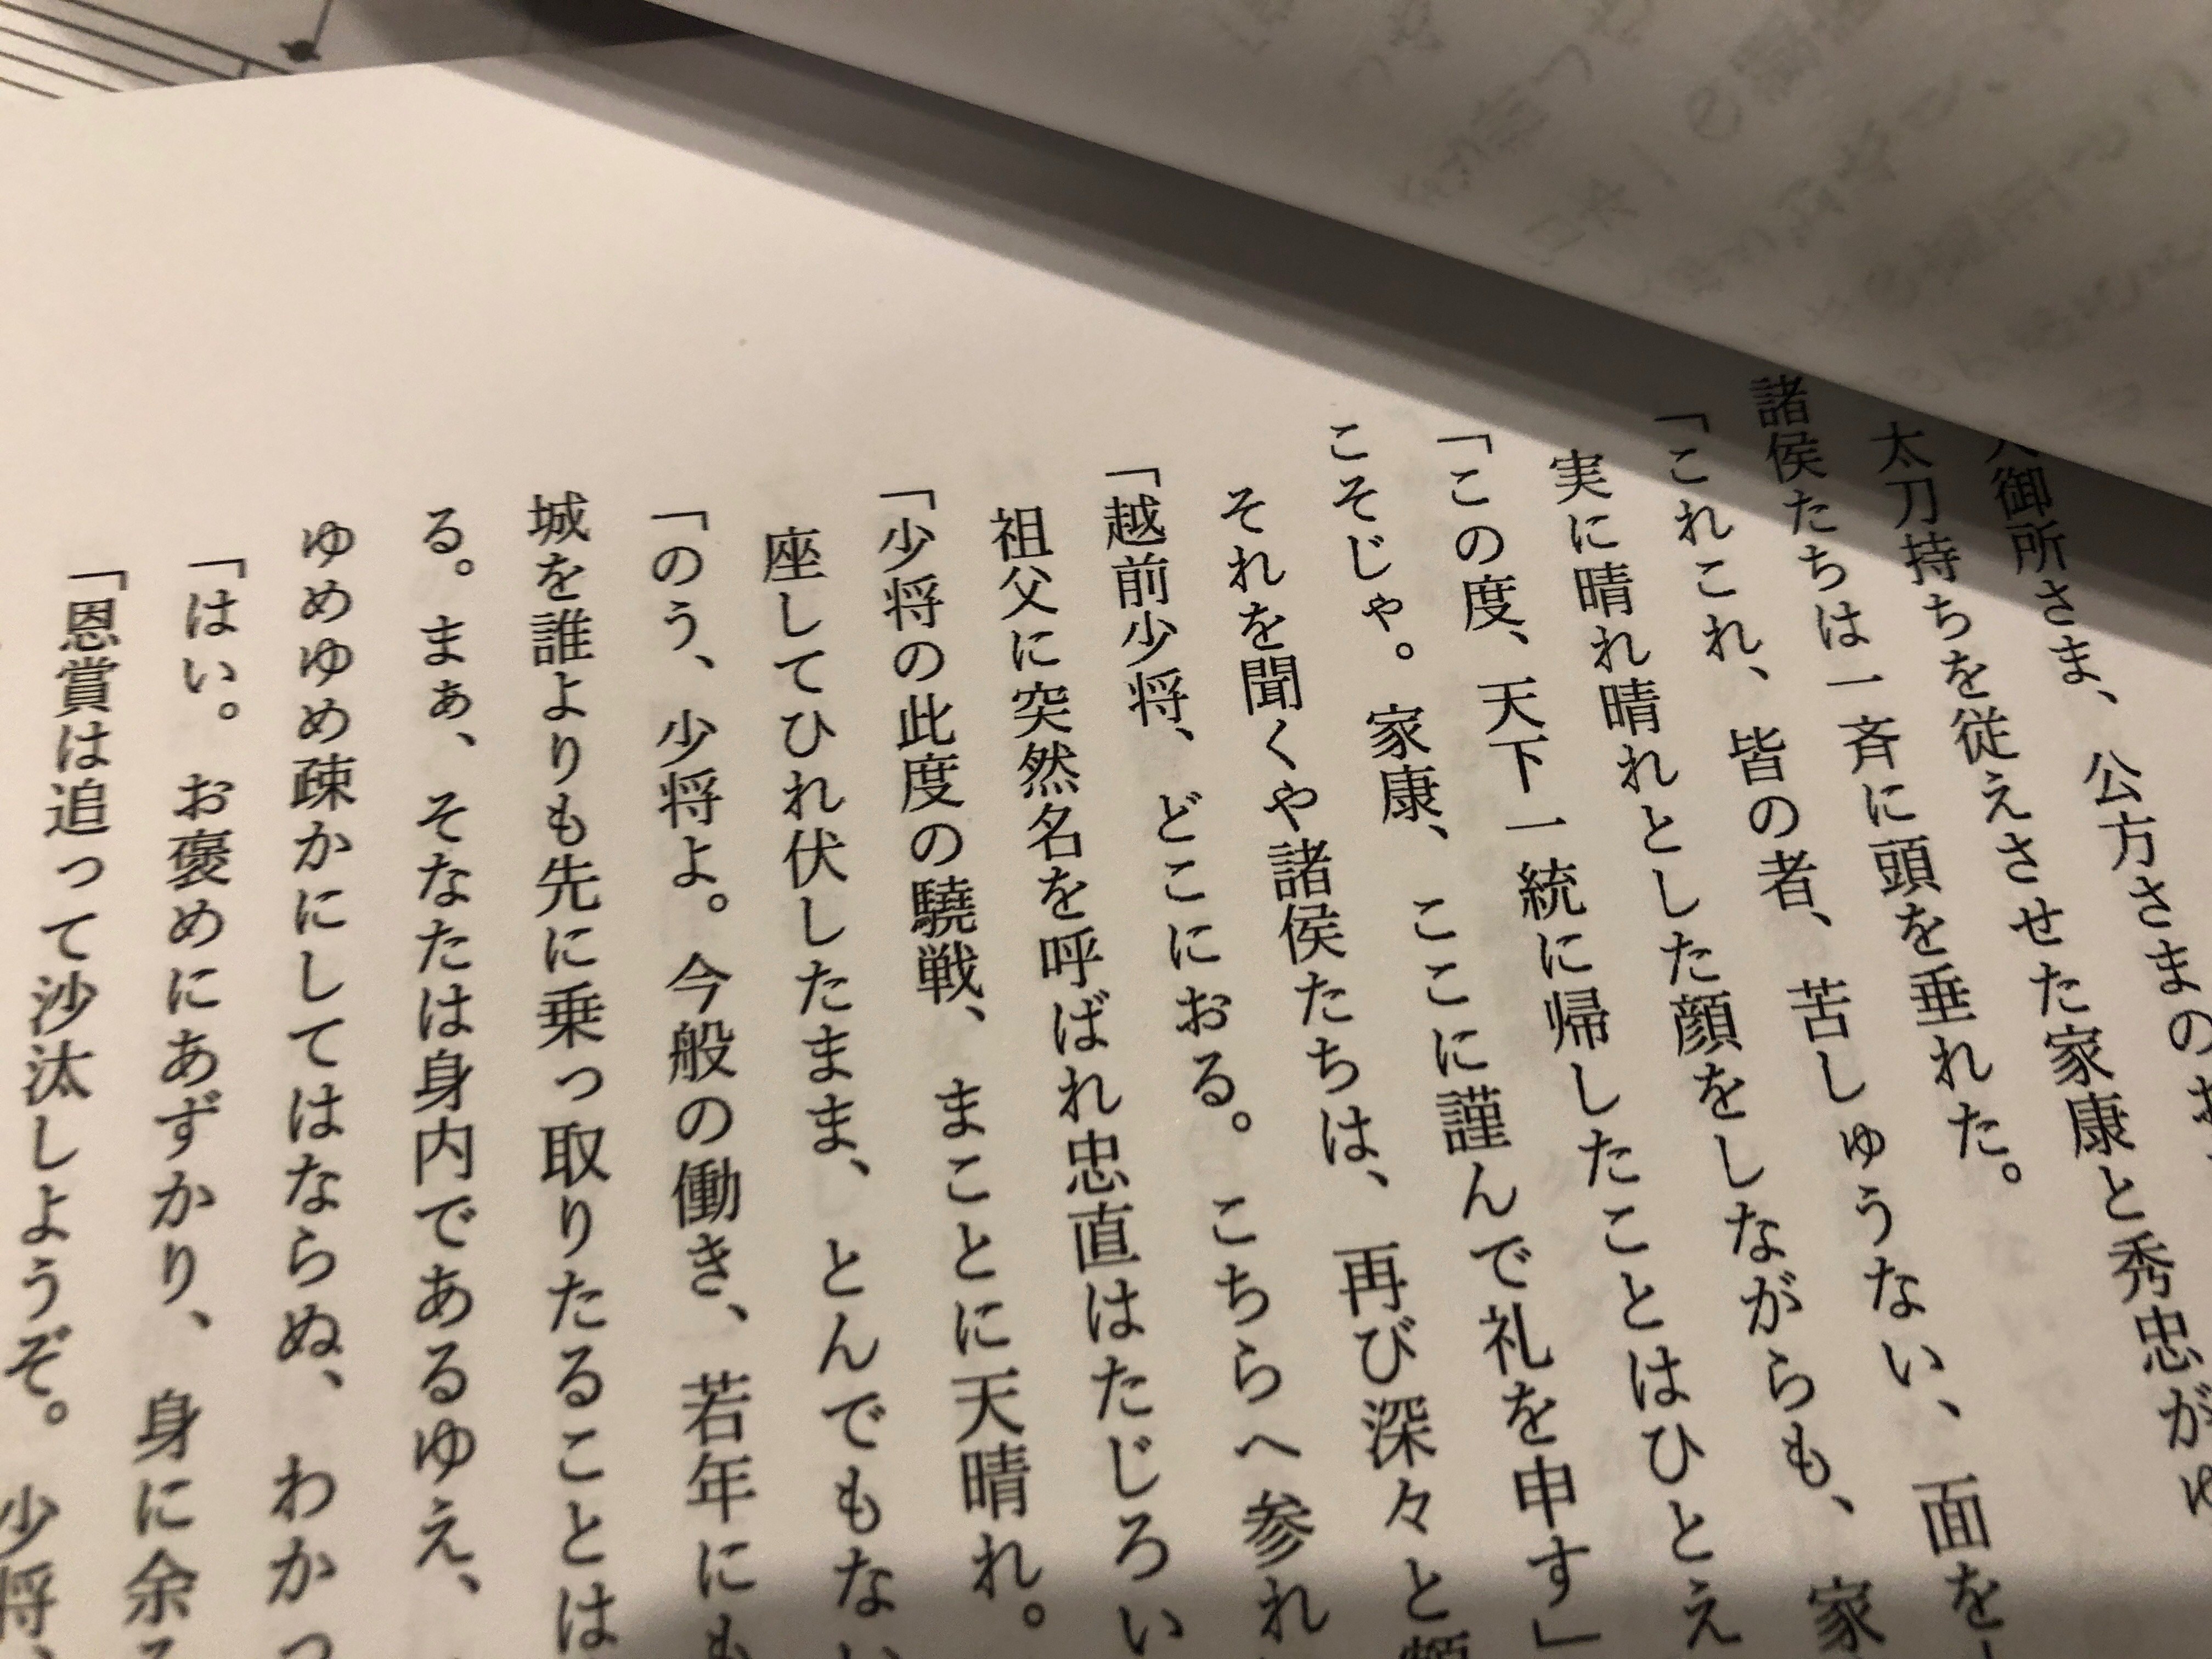 御所さま、公方さまの
太刀持ちを従えさせた家康と秀忠が
諸侯たちは一斉に頭を垂れた。
「これこれ、皆の者、苦しゅうない、面を
実に晴れ晴れとした顔をしながらも、家
「この度、天下一統に帰したことはひとえ
こそじゃ。家康、ここに謹んで礼を申す」
それを聞くや諸侯たちは、再び深々と
「越前少将、どこにおる。こちらへ参れ
祖父に突然名を呼ばれ忠直はたじろい
「少将の此度の驍戦、まことに天晴れ。
座してひれ伏したまま、とんでもない
「のう、少将よ。今般の働き、若年にも
城を誰よりも先に乗っ取りたることは
る。まぁ、そなたは身内であるゆえ、
ゆめゆめ疎かにしてはならぬ、わかっ
「はい。お褒めにあずかり、身に余る
「恩賞は追って沙汰しようぞ。少将、